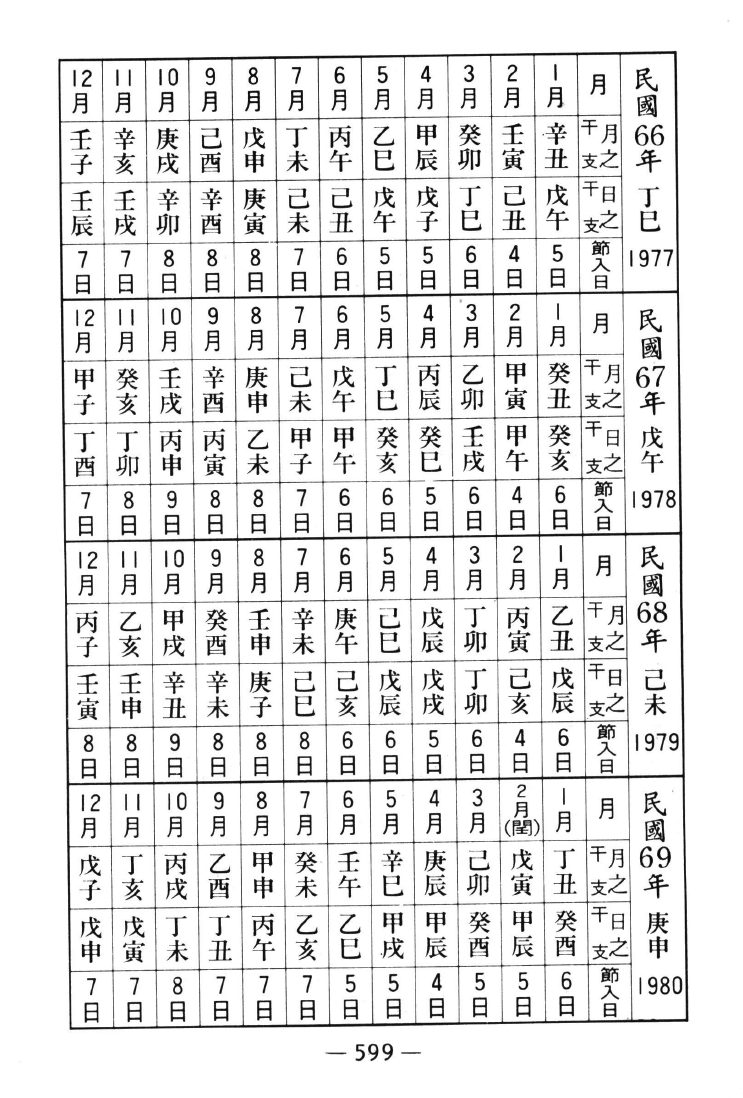 民國66年 丁巳 1977
月 1月 2月 3月 4月 5月 6月 7月 8月 9月 10月 11月 12月
月之干支 辛丑 壬寅 癸卯 甲辰 乙巳 丙午 丁未 戊申 己酉 庚戌 辛亥 壬子
日之干支 戊午 己丑 丁巳 戊子 戊午 己丑 己未 庚寅 辛酉 辛卯 壬戌 壬辰
節入日 5日 4日 6日 5日 5日 6日 7日 8日 8日 8日 7日 7日
民國67年 戊午 1978
月 1月 2月 3月 4月 5月 6月 7月 8月 9月 10月 11月 12月
月之干支 癸丑 甲寅 乙卯 丙辰 丁巳 戊午 己未 庚申 辛酉 壬戌 癸亥 甲子
日之干支 癸亥 甲午 壬戌 癸巳 癸亥 甲午 甲子 乙未 丙寅 丙申 丁卯 丁酉
節入日 6日 4日 6日 5日 6日 6日 7日 8日 8日 9日 8日 7日
民國68年 己未 1979
月 1月 2月 3月 4月 5月 6月 7月 8月 9月 10月 11月 12月
月之干支 乙丑 丙寅 丁卯 戊辰 己巳 庚午 辛未 壬申 癸酉 甲戌 乙亥 丙子
日之干支 戊辰 己亥 丁卯 戊戌 戊辰 己亥 己巳 庚子 辛未 辛丑 壬申 壬寅
節入日 6日 4日 6日 5日 6日 6日 8日 8日 8日 9日 8日 8日
民國69年 庚申 1980
月 1月 2月(閏) 3月 4月 5月 6月 7月 8月 9月 10月 11月 12月
月之干支 丁丑 戊寅 己卯 庚辰 辛巳 壬午 癸未 甲申 乙酉 丙戌 丁亥 戊子
日之干支 癸酉 甲辰 癸酉 甲辰 甲戌 乙巳 乙亥 丙午 丁丑 丁未 戊寅 戊申
節入日 6日 5日 5日 4日 5日 5日 7日 7日 7日 8日 7日 7日
— 599 —